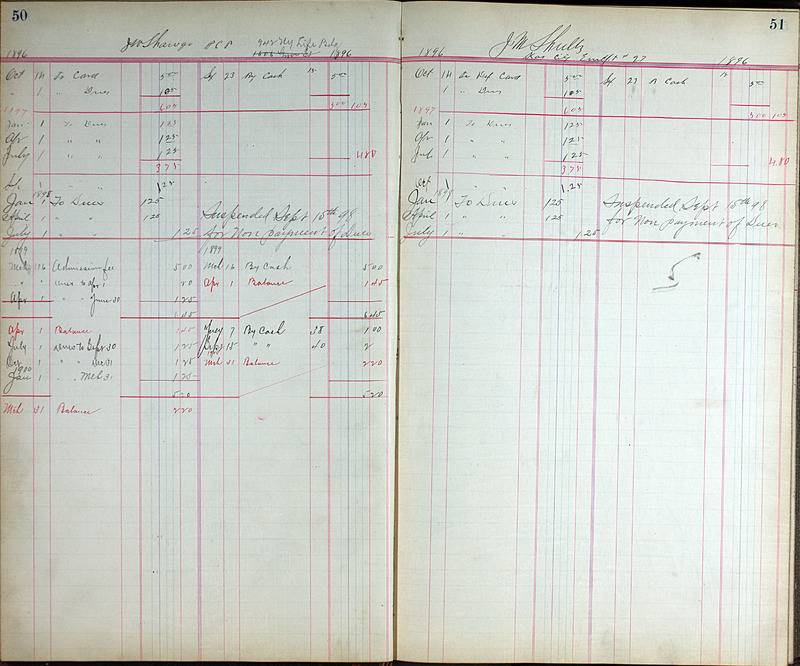 50
1896
P C P
942 Ny Life Bldg
1896
Oct 14 To Card 5 00 23 By Cash 18 5 00
" 1 " Dues 105
605 500 105
1897
Jan 1 To Dues 125
Apr 1 " " 125
July 1 " " 125 480
375
1 " " 125
1898
Jan 1 To Dues 125
April 1 " " 125 Suspended Sept 15th 98
July 1 " " 125 for Non payment of Dues
1899 1899
Mch 16 Admission fee 500 Mch 16 By Cash 500
" " Dues to Apr 1 20 Apr 1 Balance 145
Apr 1 " " June 30 125
645 645
Apr 1 Balance 145 7 By Cash 38 100
July 1 Dues to Sept 30 125 Sept 15 " " 40 2
Oct 1 " " Dec 31 125 Mch 31 Balance 220
1900
Jan 1 " " Mch 31 125
520 520
Mch 31 Balance 220
51
J M Shultz
1896
1896
Oct 14 To Card 5 00 23 By Cash 18 5 00
1 " Dues 105
605 500 105
1897
Jan 1 To Dues 125
Apr 1 " " 125
July 1 " " 125 480
375
Oct 1 " " 125
1898
Jan 1 To Dues 125 Suspended Sept 15th 98
April 1 " " 125 for Non payment of Dues
July 1 " " 125